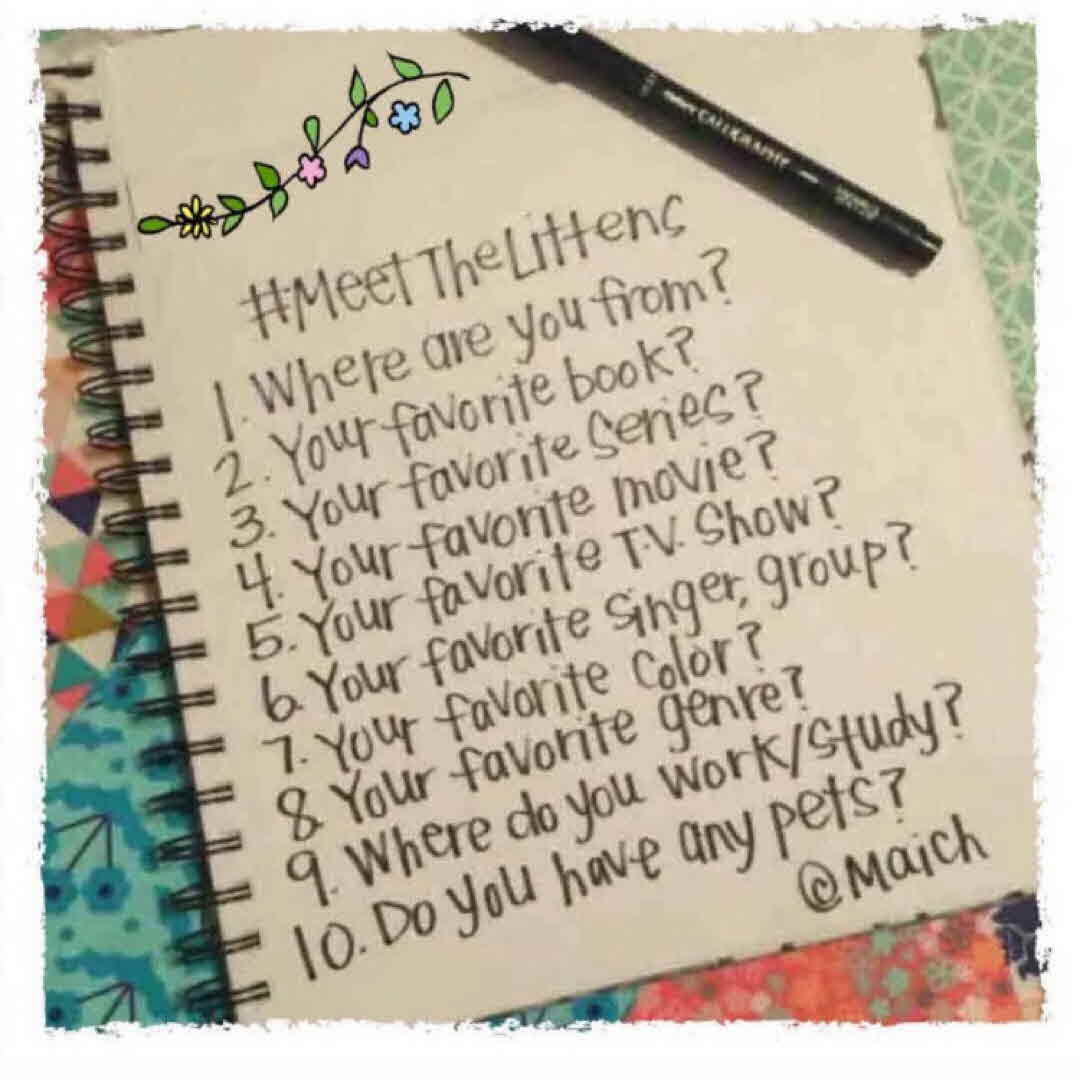 #MeetTheLittens
1. Where are you from?
2. Your favorite book?
3. Your favorite series?
4. Your favorite movie?
5. Your favorite T.V. Show?
6. Your favorite singer, group?
7. Your favorite color?
8. Your favorite genre?
9. Where do you work/study?
10. Do you have any pets?
@Maich
CALLIGRAPHY